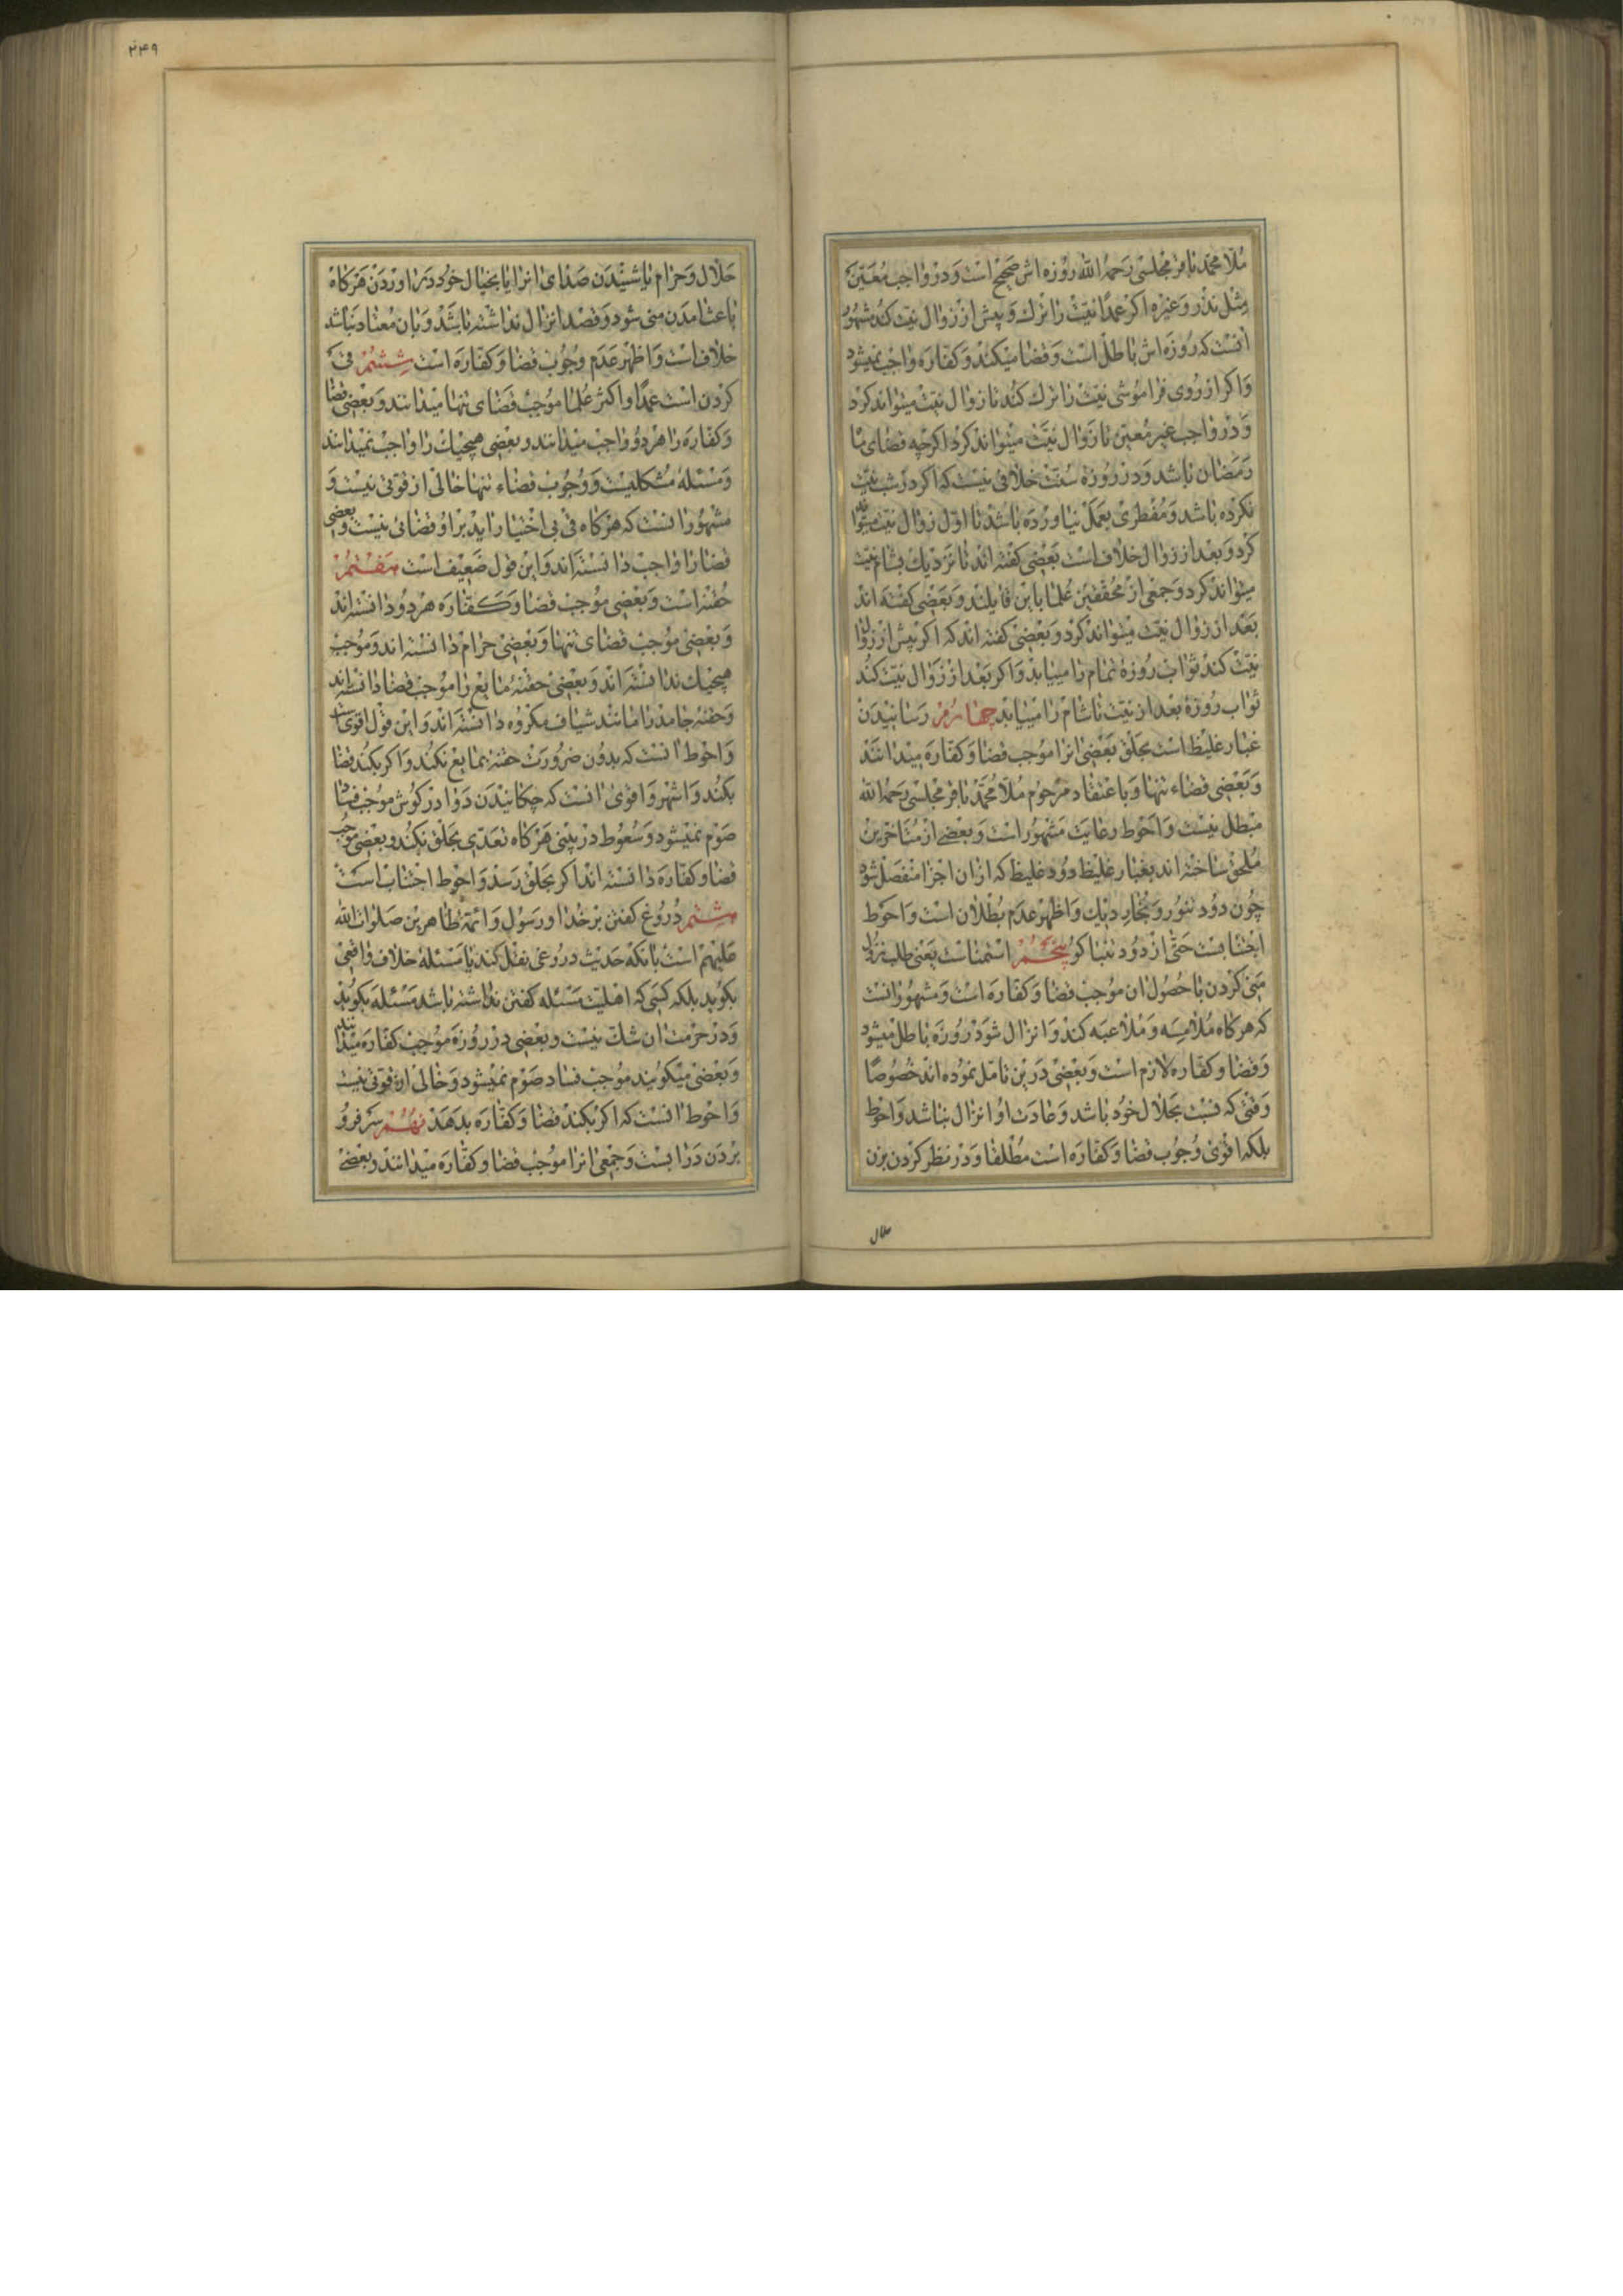 ملا محمد باقر مجلسی رحمه الله روزه اش صحیح است و در واجب معین
مثل نذر و غیره اکر عمدا نیت را ترک و پیش از زوال نیت کند مشهور
انست که روزه اش باطل است و قضا میکند و کفاره واجب نمیشود
و اکر از روی فراموشی نیت را ترک کند تا زوال نیت میتواند کرد
و در واجب غیر معین تا زوال نیت میتواند کرد اکرچه قضای ماه
رمضان باشد و در روزه سنت خلافی نیست که اکر در شب نیت
نکرده باشد و مفطری بعمل نیاورده باشد تا اول زوال نیت میتواند
کرد و بعد از زوال خلاف است بعضی کفته اند تا نزدیک بشام نیت
میتواند کرد و جمعی از محققین علما باین قایلند و بعضی کفته اند
بعد از زوال نیت میتواند کرد و بعضی کفته اند که اکر پیش از زوال
نیت کند ثواب روزه تمام را مییابد و اکر بعد از زوال نیت کند
ثواب روزه بعد از نیت تا شام را مییابد چهارم رسانیدن
غبار غلیظ است بحلق بعضی انرا موجب قضا و کفاره میدانند
و بعضی قضاء تنها و باعتقاد مرحوم ملا محمد باقر مجلسی رحمه الله
مبطل نیست و احوط رعایت مشهور است و بعضی از متاخرین
ملحق ساخته اند بغبار غلیظ دود غلیظ که ازان اجزا منفصل شود
چون دود تنور و بخار دیک و اظهر عدم بطلان است و احوط
اجتنابست حتی از دود تنباکو پنجم استمناست یعنی طلب نزول
منی کردن با حصول ان موجب قضا و کفاره است و مشهور انست
که هرکاه ملامسه و ملاعبه کند و انزال شود روزه باطل میشود
و قضا و کفاره لازم است و بعضی درین تامل نموده اند خصوصا
وقتی که نسبت بحلال خود باشد و عادت او انزال نباشد و احوط
بلکه اقوی وجوب قضا و کفاره است مطلقا و در نظر کردن بزن
حلال
۲۴۹
حلال و حرام یا شنیدن صدای انرا یا بخیال خود دراوردن هرکاه
باعث امدن منی شود و قصد انزال نداشته باشد و بان معتاد نباشد
خلاف است و اظهر عدم وجوب قضا و کفاره است ششم قی
کردن است عمدا و اکثر علما موجب قضای تنها میدانند و بعضی قضا
و کفاره را هر دو واجب میدانند و بعضی هیچیک را واجب نمیدانند
و مسئله مشکلیست و وجوب قضاء تنها خالی از قوتی نیست و
مشهور انست که هرکاه قی بی اختیار اید بر او قضائی نیست و بعضی
قضا را واجب دانسته اند و این قول ضعیف است هفتم
حقنه است و بعضی موجب قضا و کفاره هر دو دانسته اند
و بعضی موجب قضای تنها و بعضی حرام دانسته اند و موجب
هیچیک ندانسته اند و بعضی حقنه مایع را موجب قضا دانسته اند
و حقنه جامد را مانند شیاف مکروه دانسته اند و این قول اقوی است
و احوط انست که بدون ضرورت حقنه بمایع نکند و اکر بکند قضا
بکند و اشهر و اقوی انست که چکانیدن دوا در کوش موجب فساد
صوم نمیشود و سعوط در بینی هرکاه تعدی بحلق نکند و بعضی موجب
قضا و کفاره دانسته اند اکر بحلق رسد و احوط اجتناب است
هشتم دروغ کفتن بر خدا و رسول و ائمه طاهرین صلوات الله
علیهم است بانکه حدیث دروغی نقل کند یا مسئله خلاف واقعی
بکوید بلکه کسی که اهلیت مسئله کفتن نداشته باشد مسئله بکوید
و در حرمت ان شک نیست و بعضی در روزه موجب کفاره میدانند
و بعضی میکویند موجب فساد صوم نمیشود و خالی از قوتی نیست
و احوط انست که اکر بکند قضا و کفاره بدهد نهم سر فرو
بردن در ابست و جمعی انرا موجب قضا و کفاره میدانند و بعضی